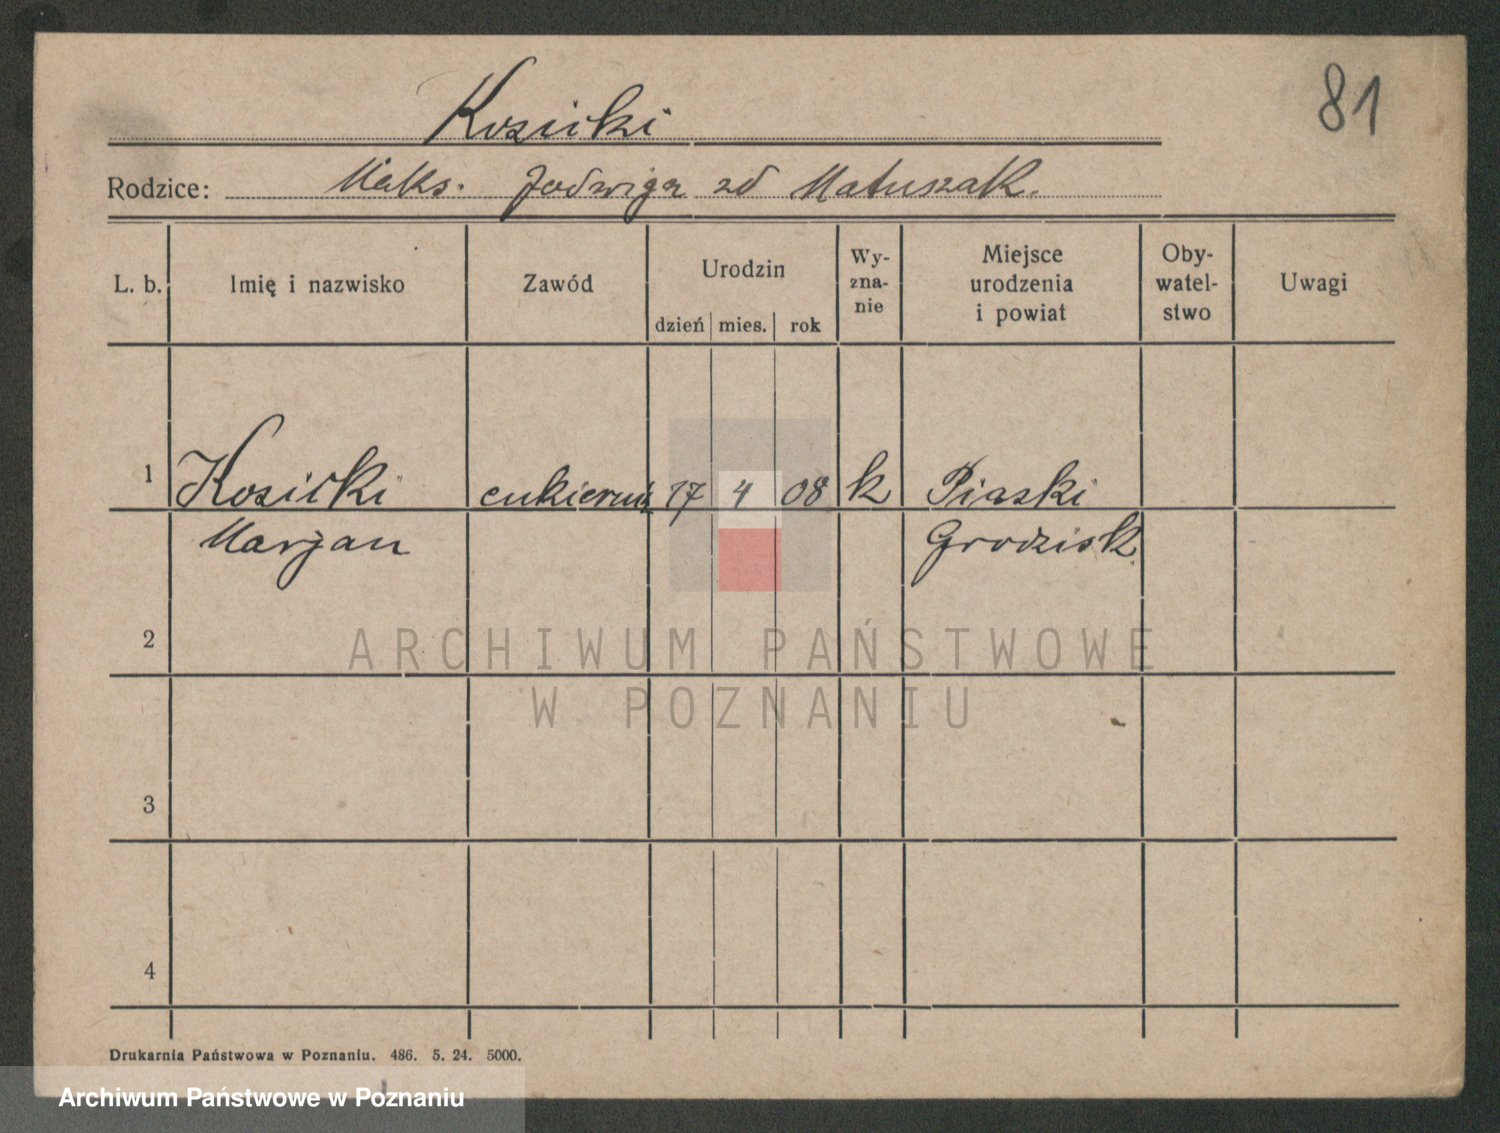 81
Kosicki
Rodzice: Maks. Jadwiga zd Matuszak.
L. b. Imię i nazwisko Zawód Urodzin Wy- zna- nie Miejsce urodzenia i powiat Oby- watel- stwo Uwagi
dzień mies. rok
1 Kosicki cukiernik 17 4 08 k Piaski
Marjan Grodzisk
2
3
4
ARCHIWUM PAŃSTWOWE
W POZNANIU
Drukarnia Państwowa w Poznaniu. 486. 5. 24. 5000.
Archiwum Państwowe w Poznaniu